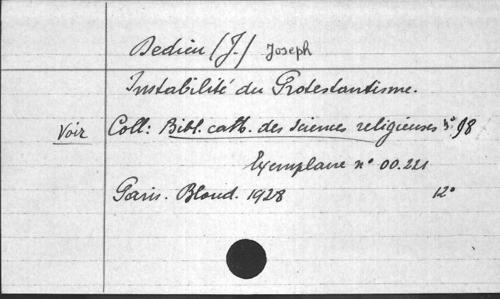 Dedieu (J.) Joseph
Instabilité du Protestantisme.
Voir Coll: Bibl. cath. des sciences religieuses n° 98
Exemplaire n° 00.221
Paris. Bloud. 1928 12°